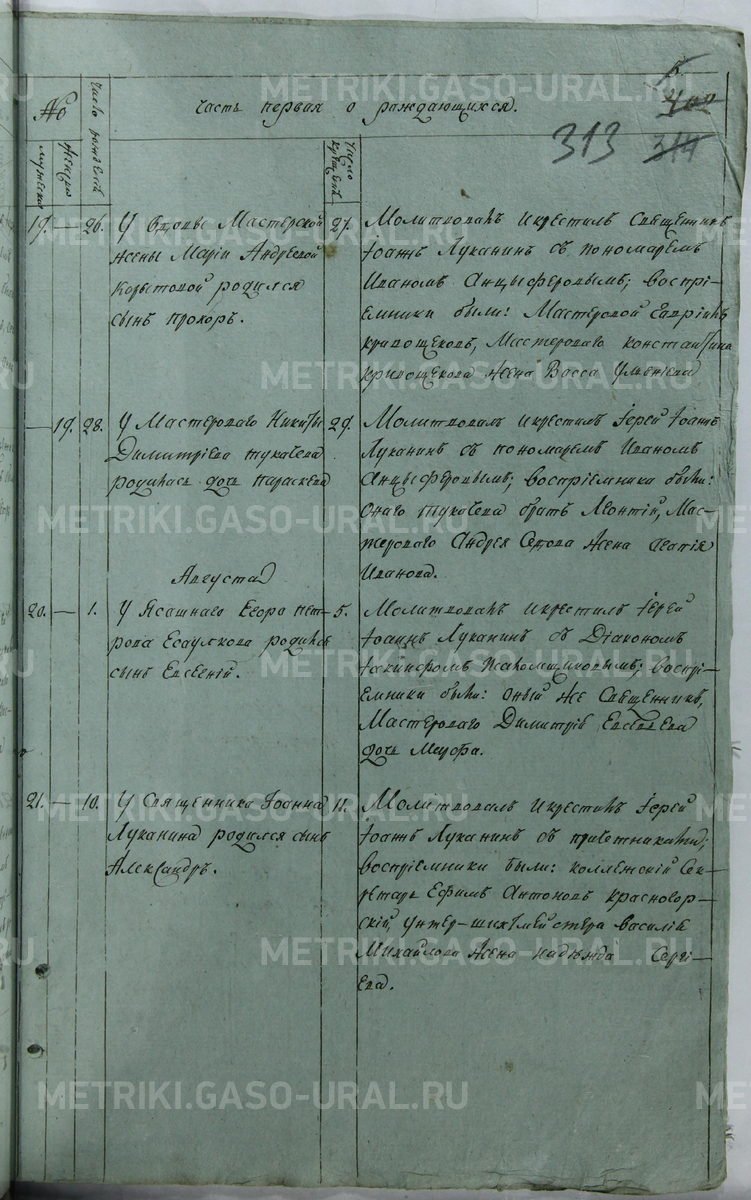 №
Число рождения
Часть первая о раждающихся.
400
313 314
мужеска
женска
Число крещения
19. — 26. У Вдовы Мастерской
жены Марiи Андреевой
Корытовой родился
сынъ Прохоръ.
27. Молитвовалъ и крестилъ Священникъ
Iоаннъ Луканинъ съ пономаремъ
Иваномъ Анцыферовымъ; воспрi-
емники были: Мастеровой Гаврiилъ
Кривощековъ, Мастероваго Константина
Кривощекова жена Васса
— 19. 28. У Мастероваго Никиты
Димитрiева Тукачева
родилась дочь Параскева
29. Молитвовалъ и крестилъ Iерей Iоаннъ
Луканинъ съ пономаремъ Иваномъ
Анцыферовымъ; воспрiемники были:
Онаго Тукачева братъ Леонтiй, Мас-
тероваго Андрея Седова жена Агапiя
Иванова.
Августа
20. — 1. У Ясашнаго Егора Пет-
рова Есаулкова родился
сынъ Евгенiй.
5. Молитвовалъ и крестилъ Iерей
Iоаннъ Луканинъ съ Дiакономъ
Iакинфомъ воспрi-
емники были: оный же Священникъ,
Мастероваго Димитрiя
дочь Марфа.
21. — 10. У Священника Iоанна
Луканина родился сынъ
Александръ.
11. Молитвовалъ и крестилъ Iерей
Iоаннъ Луканинъ съ причетниками;
воспрiемники были: коллежскiй Сек-
ретарь Ефимъ Антоновъ Красногор-
скiй, унтер-шихтмейстера Василiя
Михайлова жена Надежда Сергi-
ева.
METRIKI.GASO-URAL.RU